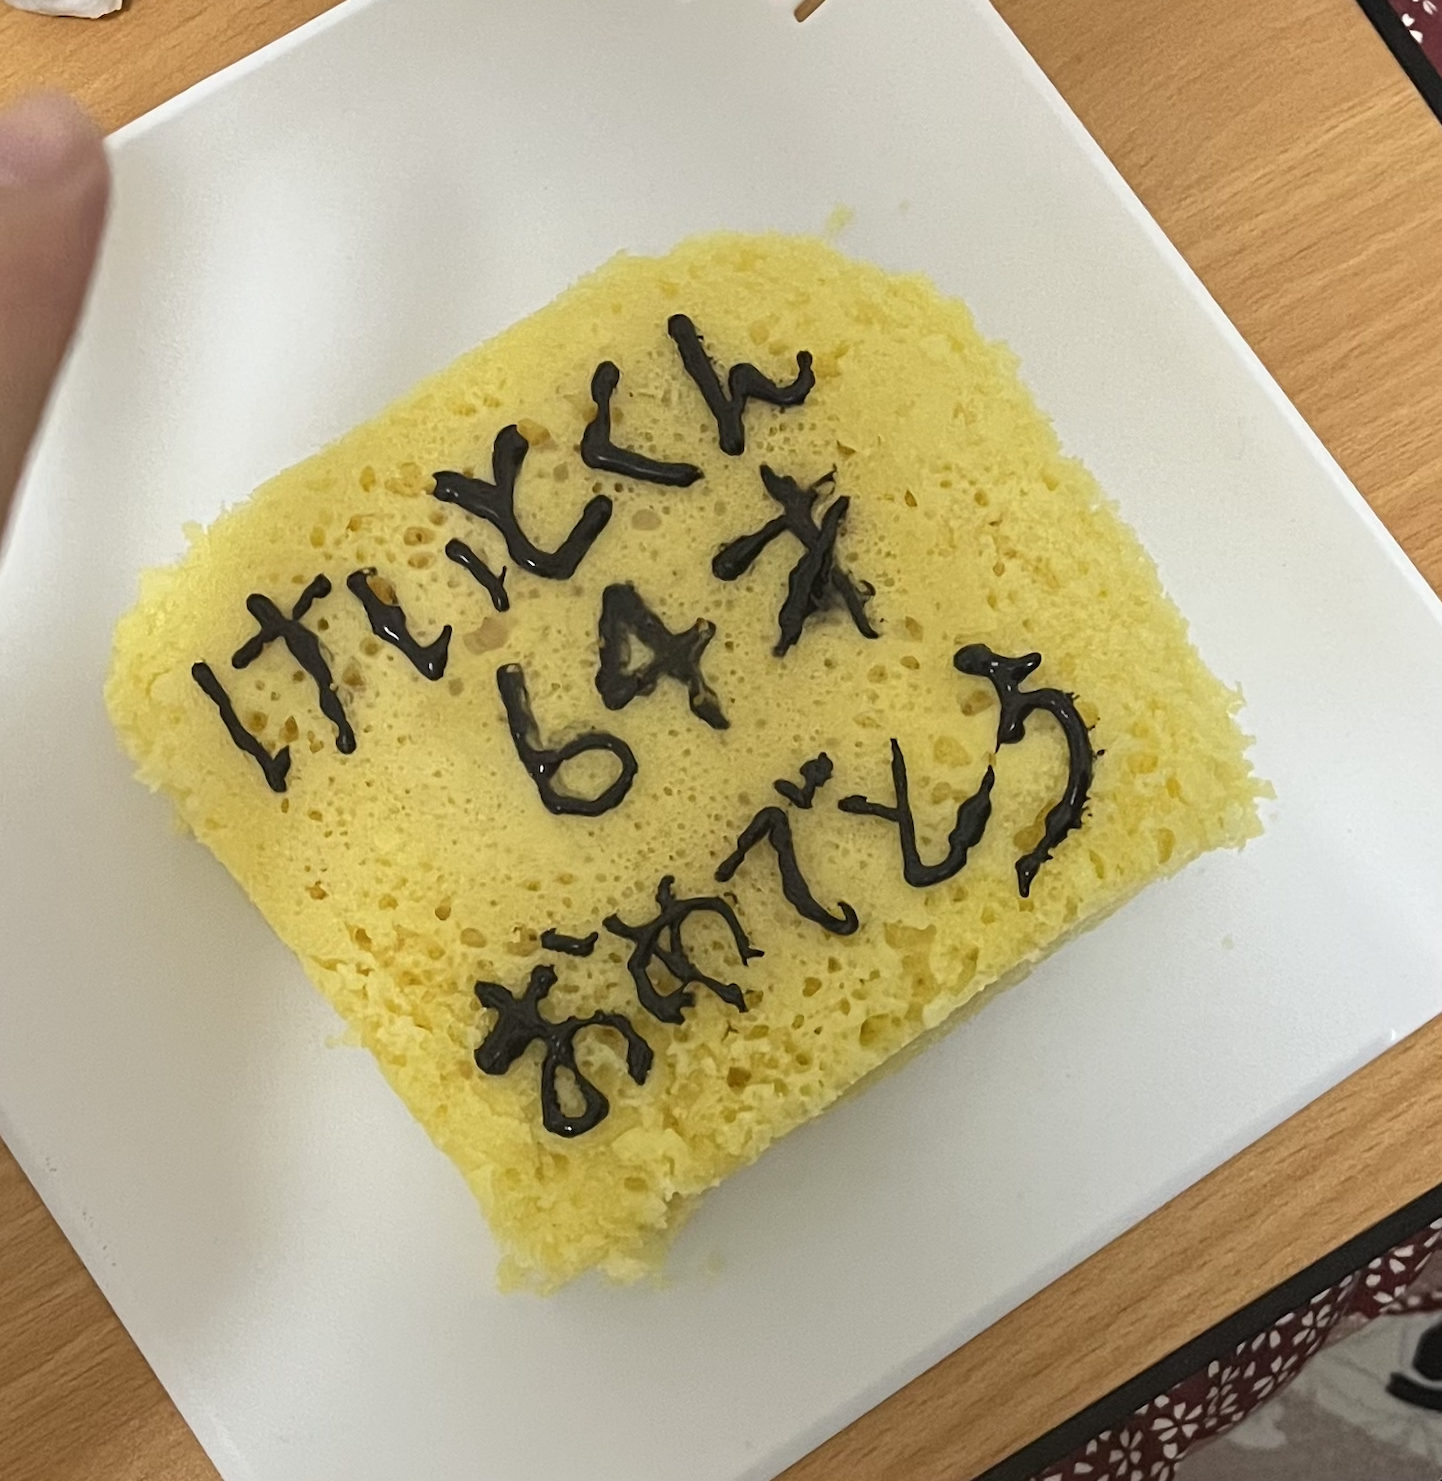 けいとくん
64才
おめでとう